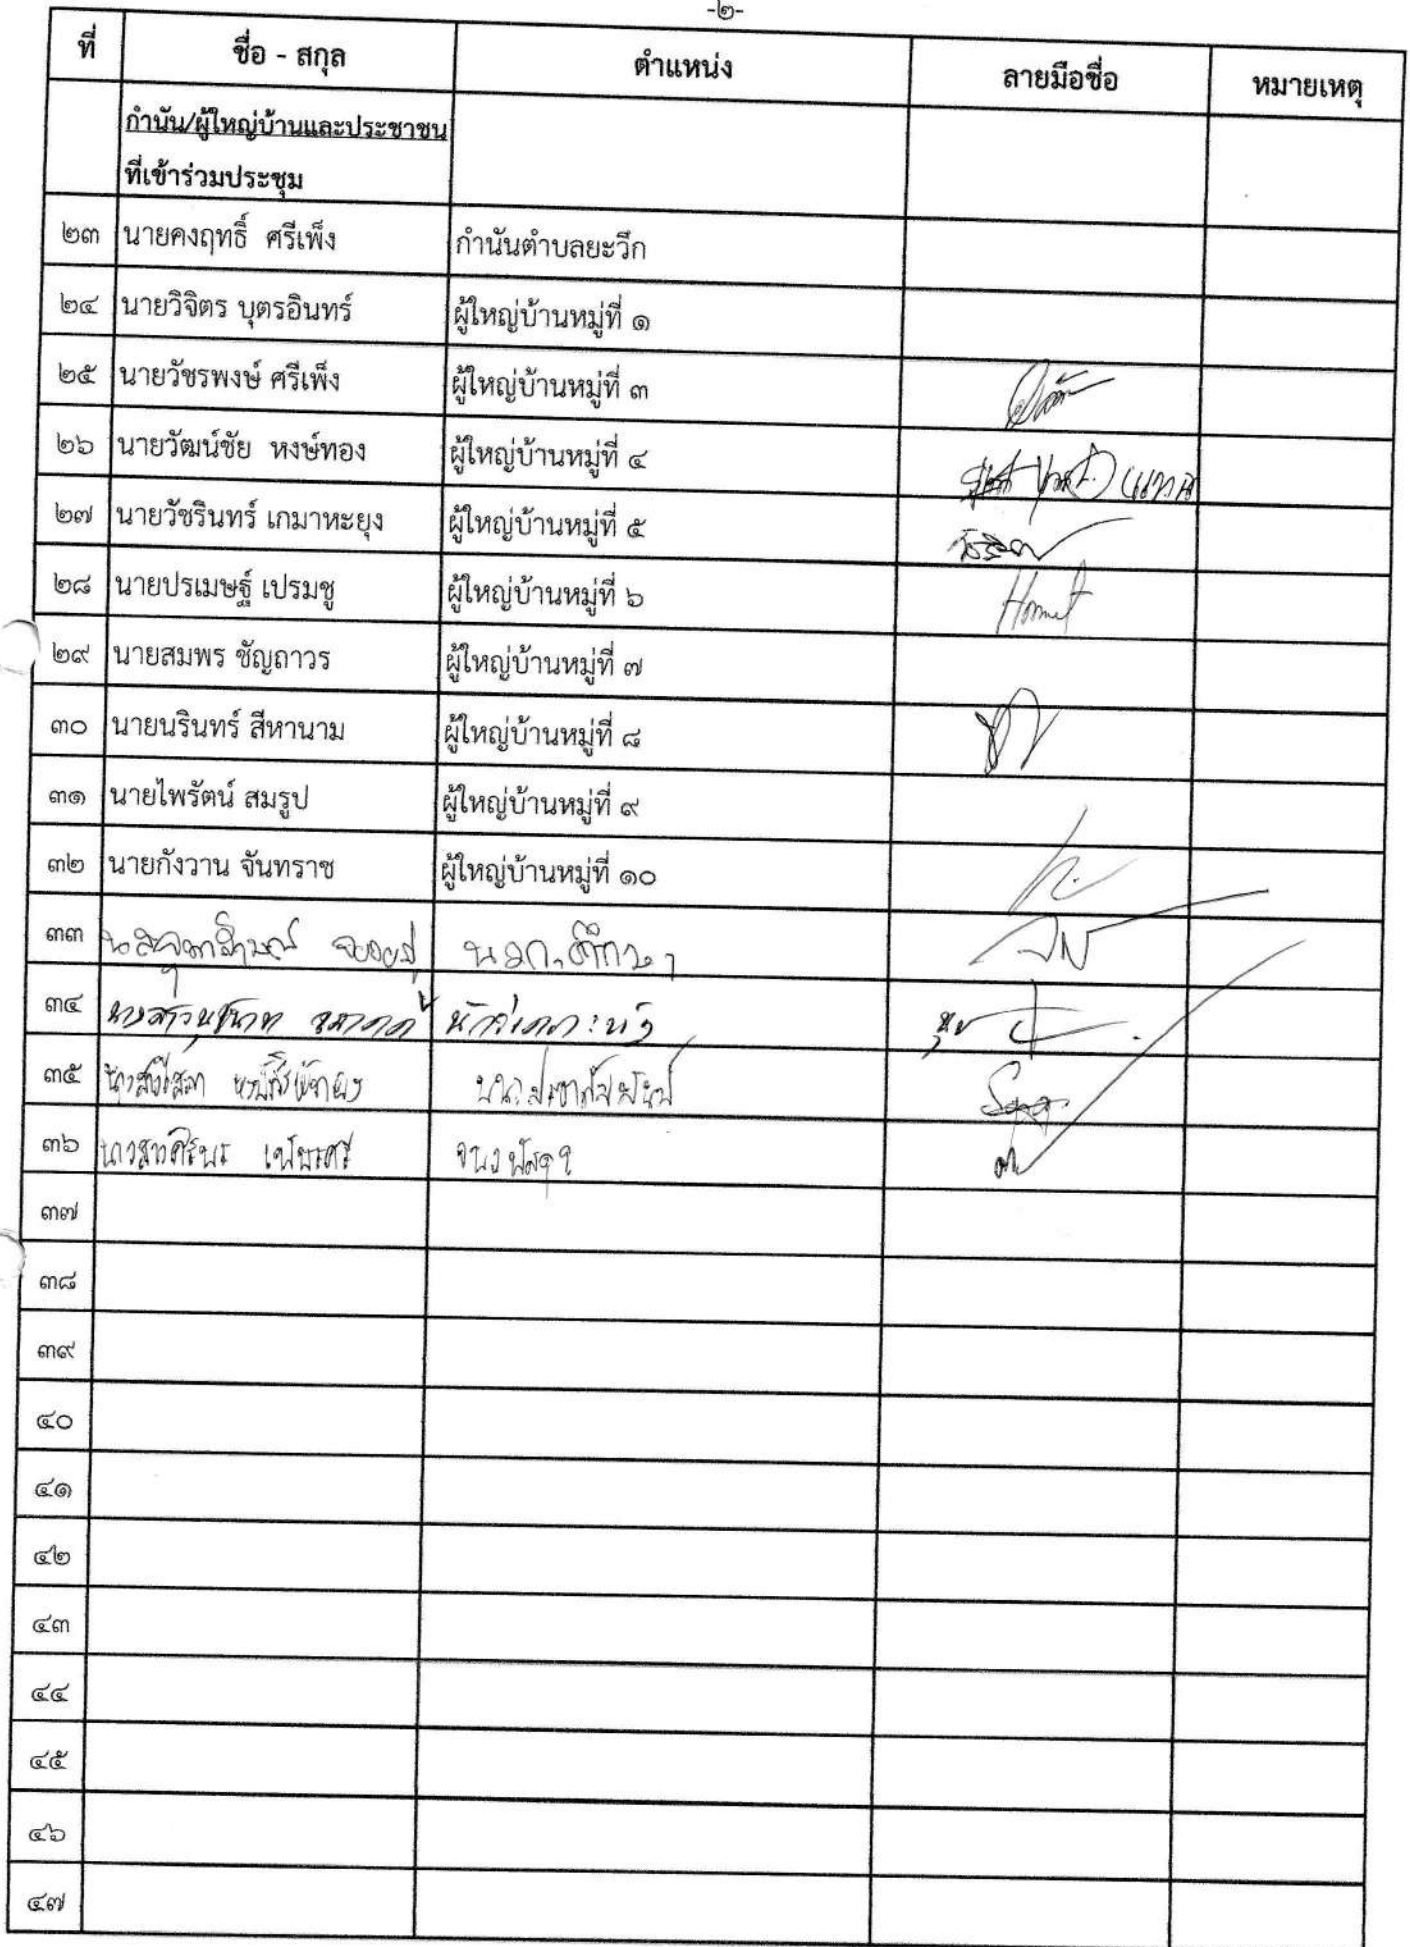 -๒-
ที่ ชื่อ - สกุล ตำแหน่ง ลายมือชื่อ หมายเหตุ
กำนัน/ผู้ใหญ่บ้านและประชาชน
ที่เข้าร่วมประชุม
๒๓ นายคงฤทธิ์ ศรีเพ็ง กำนันตำบลยะวึก
๒๔ นายวิจิตร บุตรอินทร์ ผู้ใหญ่บ้านหมู่ที่ ๑
๒๕ นายวัชรพงษ์ ศรีเพ็ง ผู้ใหญ่บ้านหมู่ที่ ๓
๒๖ นายวัฒน์ชัย หงษ์ทอง ผู้ใหญ่บ้านหมู่ที่ ๔ แทน
๒๗ นายวัชรินทร์ เกมาหะยุง ผู้ใหญ่บ้านหมู่ที่ ๕
๒๘ นายปรเมษฐ์ เปรมชู ผู้ใหญ่บ้านหมู่ที่ ๖
๒๙ นายสมพร ชัญถาวร ผู้ใหญ่บ้านหมู่ที่ ๗
๓๐ นายนรินทร์ สีหานาม ผู้ใหญ่บ้านหมู่ที่ ๘
๓๑ นายไพรัตน์ สมรูป ผู้ใหญ่บ้านหมู่ที่ ๙
๓๒ นายกังวาน จันทราช ผู้ใหญ่บ้านหมู่ที่ ๑๐
๓๓
๓๔ นางสาว
๓๕ นางสาว
๓๖ นางสาวศิริพร
๓๗
๓๘
๓๙
๔๐
๔๑
๔๒
๔๓
๔๔
๔๕
๔๖
๔๗